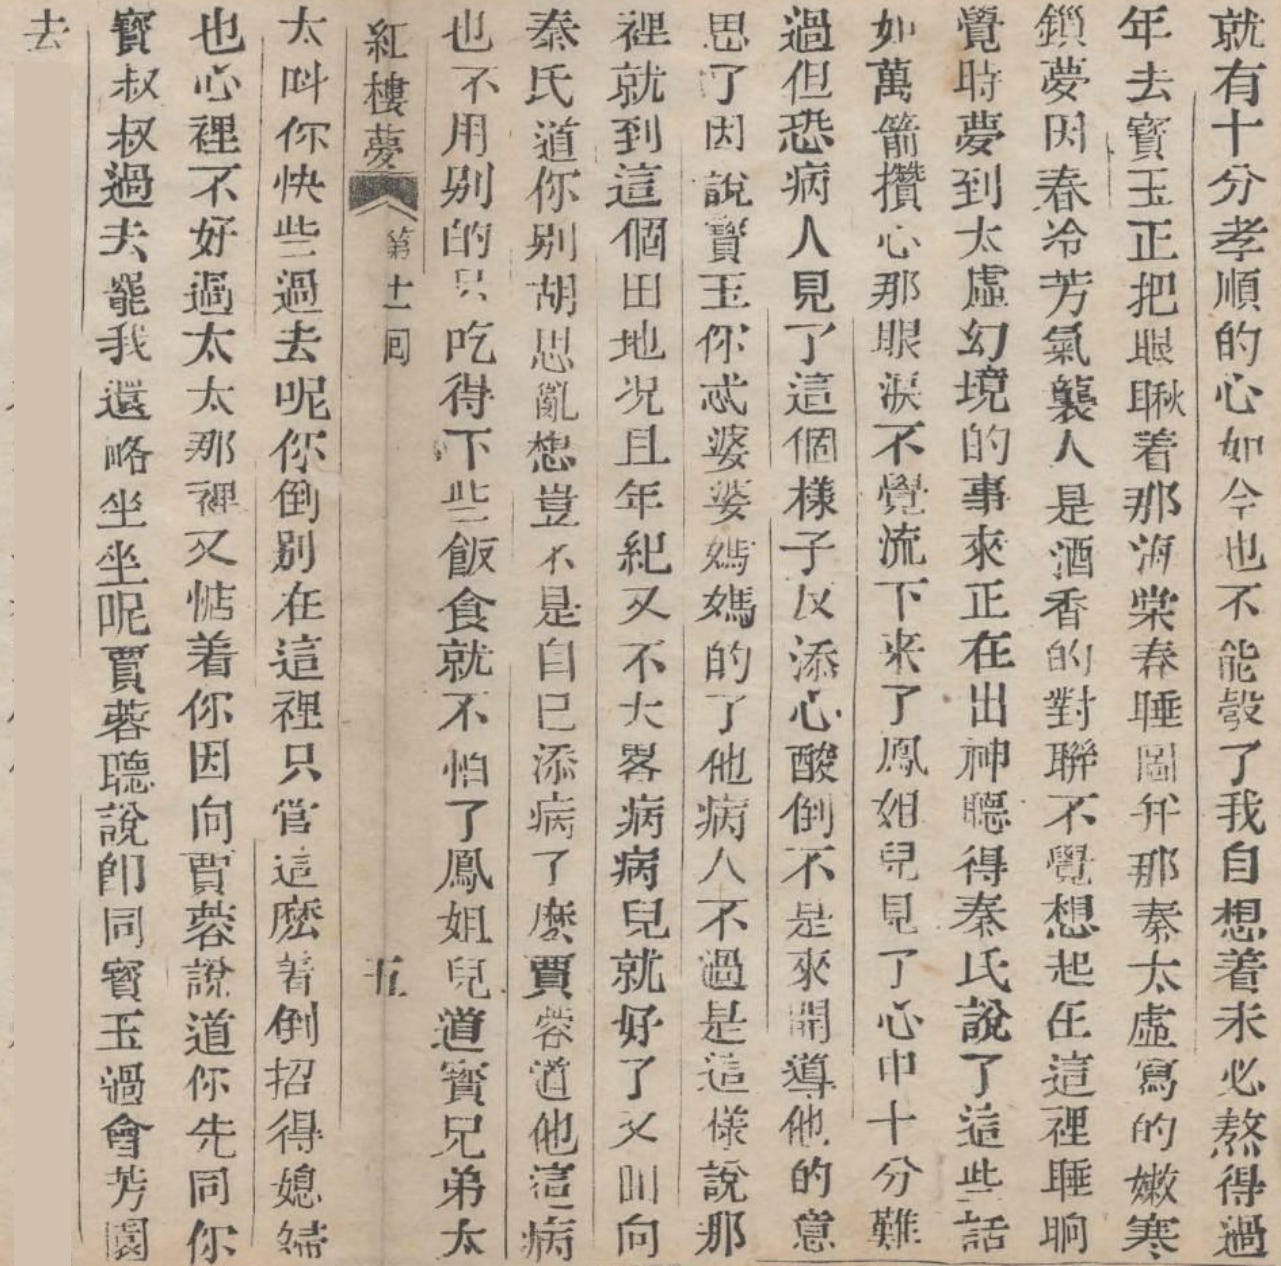 就有十分孝順的心如今也不能彀了我自想着未必熬得過
年去寳玉正把眼瞅着那海棠春睡圖并那秦太虛寫的嫩寒
鎖夢因春冷芳氣襲人是酒香的對聯不覺想起在這裡睡晌
覺時夢到太虛幻境的事來正在出神聽得秦氏說了這些話
如萬箭攢心那眼淚不覺流下来了鳳姐兒見了心中十分難
過但恐病人見了這個樣子反添心酸倒不是來開導他的意
思了因說寳玉你忒婆婆媽媽的了他病人不過是這樣說那
裡就到這個田地况且年紀又不大畧病病兒就好了又叫向
秦氏道你别胡思亂想豈不是自已添病了麽賈蓉道他這病
也不用别的只吃得下些飯食就不怕了鳳姐兒道寳兄弟太
紅樓夢 第十一回 五
太呌你快些過去呢你倒别在這裡只管這麽着倒招得媳婦
也心裡不好過太太那裡又惦着你因向賈蓉說道你先同你
寳叔叔過去罷我還略坐坐呢賈蓉聽說卽同寳玉過會芳園
去